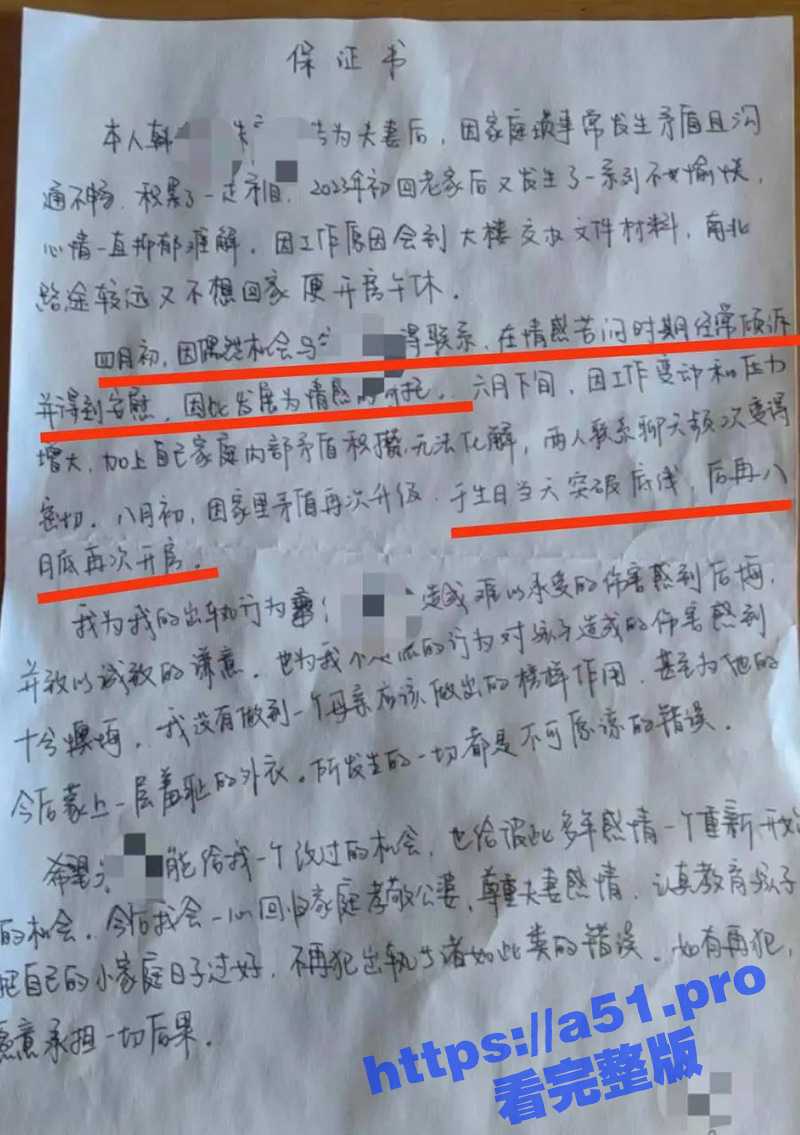 保证书
本人韩 为夫妻后，因家庭琐事常发生矛盾且沟
通不畅，积累了一定矛盾，2023年初回老家后又发生了一系列不愉快，
心情一直抑郁难解，因工作原因会到大楼交办文件材料，南北
路途较远又不想回家便开房午休。
四月初，因偶然机会与 得联系，在情感苦闷时期经常倾诉
并得到安慰，因此发展为情感的寄托。六月下旬，因工作变动和压力
增大，加上自己家庭内部矛盾积攒无法化解，两人联系聊天频次变得
密切。八月初，因家里矛盾再次升级，于生日当天突破底线，后再八
月底再次开房。
我为我的出轨行为 造成难以承受的伤害感到后悔，
并致以诚致的谦意，也为我个人 的行为对孩子造成的伤害感到
十分懊悔，我没有做到一个母亲应该做出的榜样作用，甚至为他的
今后蒙上一层羞耻的外衣。所发生的一切都是不可原谅的错误。
希望 能给我一个改过的机会，也给彼此多年感情一个重新开始
的机会。今后我会一心回归家庭孝敬公婆，尊重夫妻感情，认真教育孩子
把自己的小家庭日子过好，不再犯出轨 诸如此类的错误。如有再犯，
愿意承担一切后果。
https://a51.pro
看完整版